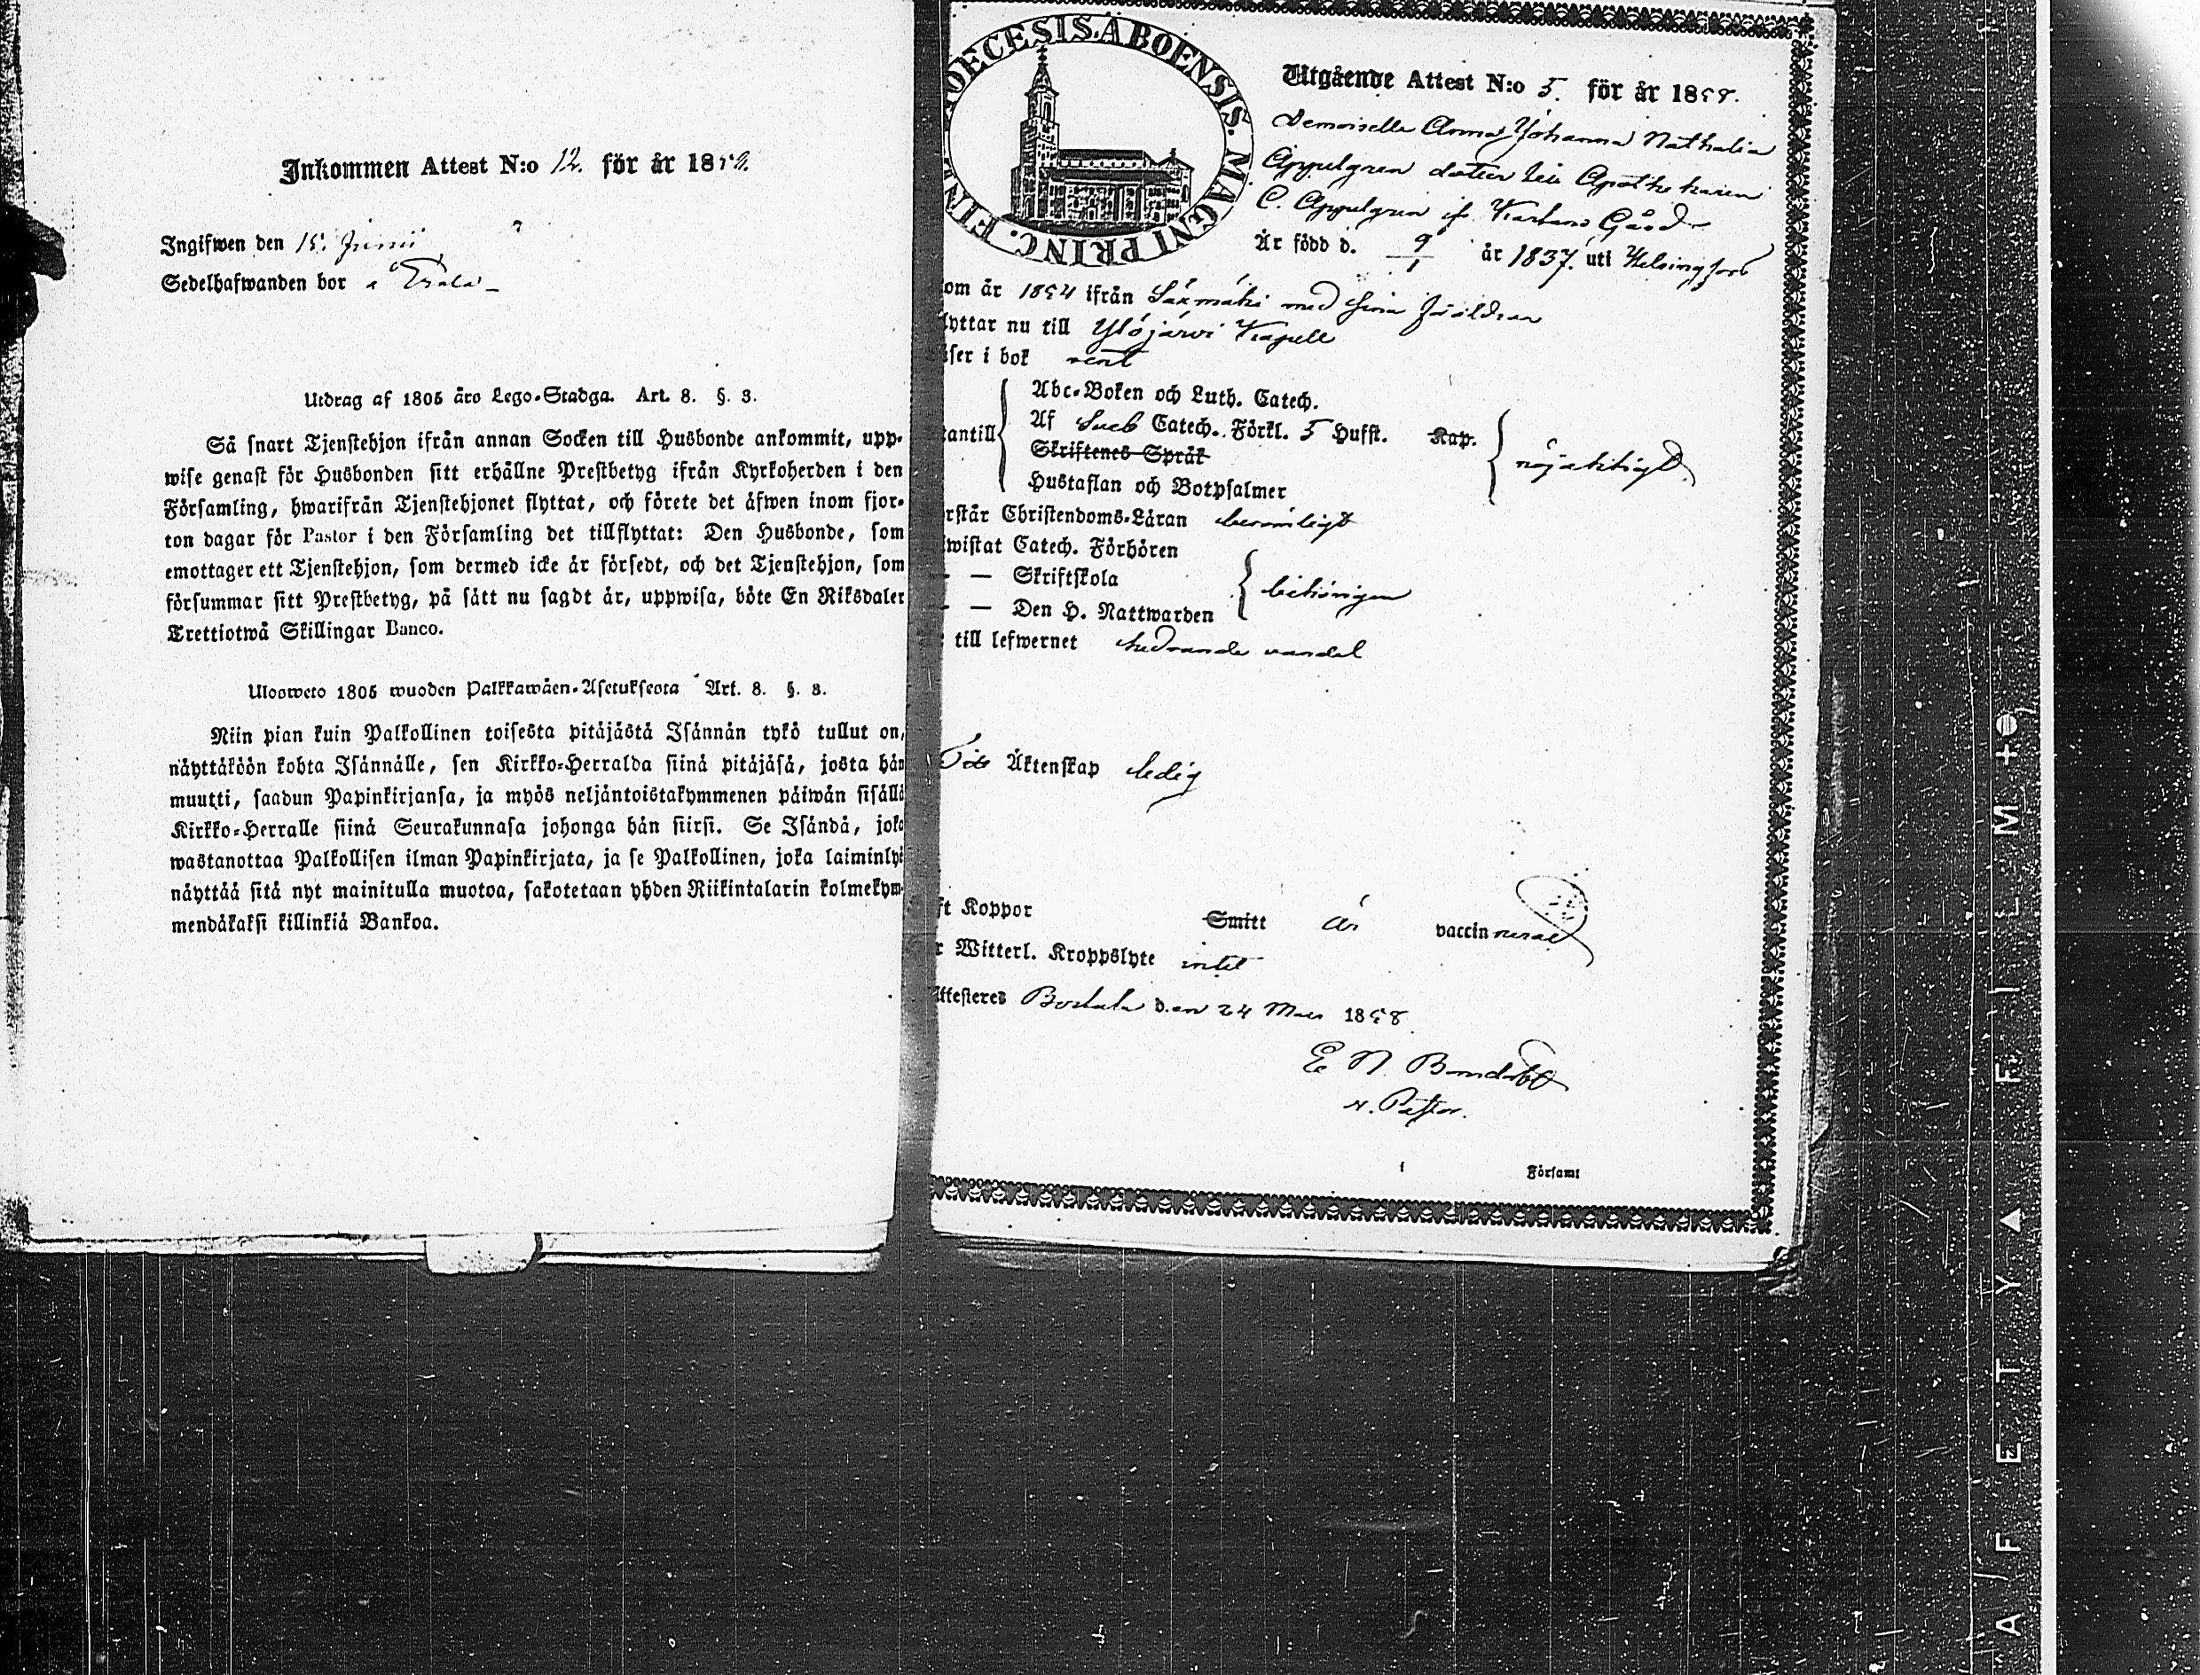 Inkommen Attest N:o 12. för år 1859.
Ingifwen den 15. Junii
Sedelhafwanden bor å
Utdrag af 1805 års Lego-Stadga. Art. 8. §. 3.
Så snart Tjenstehjon ifrån annan Socken till Husbonde ankommit, upp-
wise genast för Husbonden sitt erhållne Prestbetyg ifrån Kyrkoherden i den
Församling, hwarifrån Tjenstehjonet flyttat, och förete det äfwen inom fjor-
ton dagar för Pastor i den Församling det tillflyttat: Den Husbonde, som
emottager ett Tjenstehjon, som dermed icke är försedt, och det Tjenstehjon, som
försummar sitt Prestbetyg, på sätt nu sagdt är, uppwisa, böte En Riksdaler
Trettiotwå Skillingar Banco.
Ulosweto 1805 wuoden Palkkawäen-Asetuksesta Art. 8. §. 3.
Niin pian kuin Palkollinen toisesta pitäjästä Isännän tykö tullut on,
näyttäköön kohta Isännälle, sen Kirkko-Herralda siinä pitäjäsä, josta hän
muutti, saadun Papinkirjansa, ja myös neljäntoistakymmenen päiwän sisällä
Kirkko-Herralle siinä Seurakunnasa johonga hän siirsi. Se Isändä, joka
wastanottaa Palkollisen ilman Papinkirjata, ja se Palkollinen, joka laiminlyö
näyttää sitä nyt mainitulla muotoa, sakotetaan yhden Riikintalarin kolmekym-
mendäkaksi killinkiä Bankoa.
DIOECESIS. ABOENSIS. MAGNI PRINC. FINL
Utgående Attest N:o 5. för år 1858.
Demoiselle Anna Johanna Nathalia
Appelgren dotter till Apothekaren
C. Appelgren if. Gård
Är född d. 9/1 år 1837. uti Helsingfors
om år 1854 ifrån Säxmäki med sina föräldrar
lyttar nu till Ylöjärvi Kapell
äser i bok rent
Abc-Boken och Luth. Catech.
Af Sveb Catech. Förkl. 5 Hufst. Kap.
tantill
Skriftenes Språk
nöjaktigt
Hustaflan och Botpsalmer
rstår Christendoms-Läran berömligt
wistat Catech. Förhören
— — Skriftskola
behörigen
— — Den H. Nattwarden
till lefwernet hedrande vandel
Till Äktenskap ledig
ft Koppor Smitt är vaccinnerad
r Witterl. Kroppslyte intet
Attesteres den 24 Mars 1858
E N
v. Pastor.
i Församl
A F E T Y ▲ F I L M +